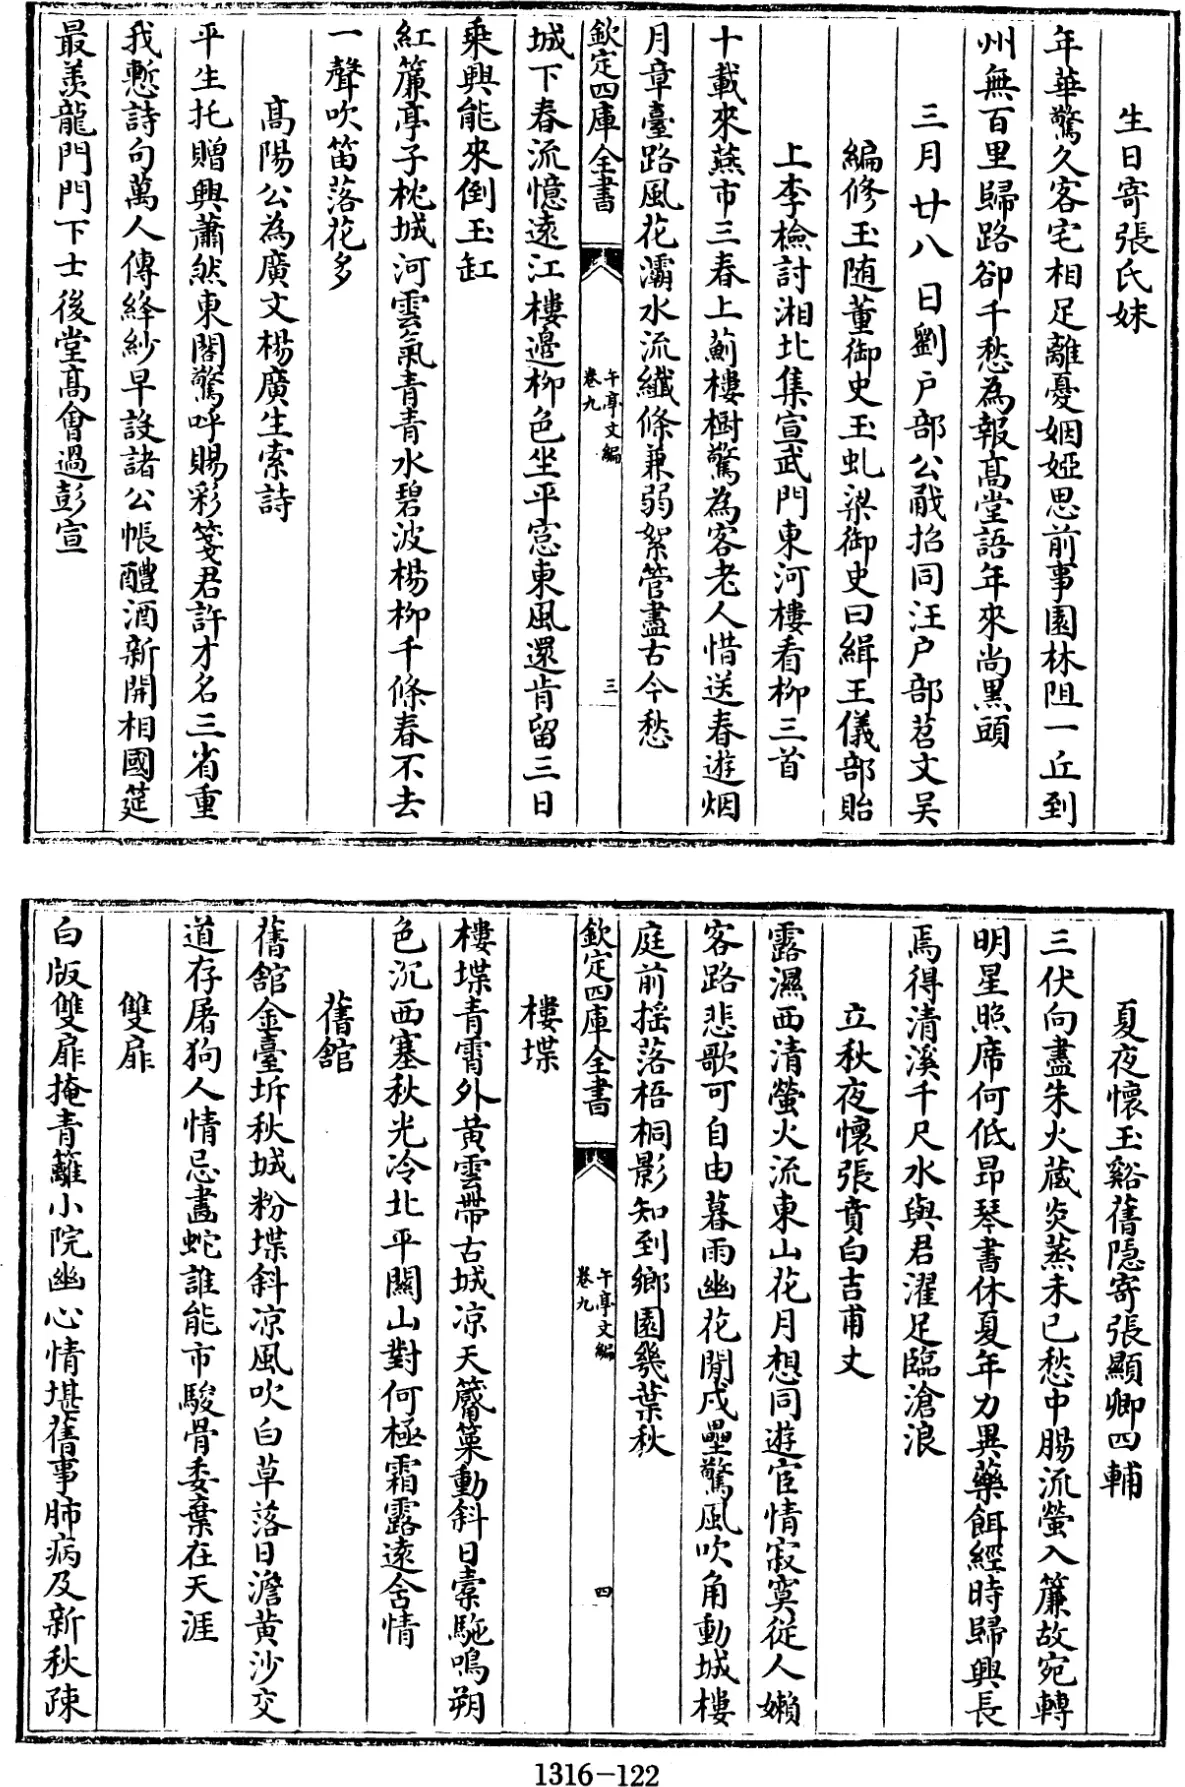 生日寄張氏妹
年華驚久客宅相足離憂姻婭思前事園林阻一丘到
州無百里歸路卻千愁為報髙堂語年來尚黑頭
三月廿八日劉户部公㦸招同汪户部苕文吴
編修玉随董御史玉虬梁御史曰緝王儀部貽
上李檢討湘北集宣武門東河樓看柳三首
十載來燕市三春上薊樓樹驚為客老人惜送春遊烟
月章臺路風花灞水流纖條兼弱絮管盡古今愁
欽定四庫全書
午亭文編
卷九
三
城下春流憶遠江樓邉柳色坐平窓東風還肯留三日
乘興能來倒玉缸
紅簾亭子枕城河雲氣青青水碧波楊柳千條春不去
一聲吹笛落花多
髙陽公為廣文楊廣生索詩
平生托贈興蕭然東閣驚呼賜彩箋君許才名三省重
我慙詩句萬人傳絳紗早設諸公帳醴酒新開相國筵
最羨龍門門下士後堂髙會過彭宣
夏夜懷玉谿舊隠寄張顯卿四輔
三伏向盡朱火蔵炎蒸未已愁中腸流螢入簾故宛轉
明星照席何低昻琴書休夏年力異藥餌經時歸興長
焉得清溪千尺水與君濯足臨滄浪
立秋夜懷張賁白吉甫丈
露濕西清螢火流東山花月想同遊宦情寂寞從人嬾
客路悲歌可自由暮雨幽花閒戍壘驚風吹角動城樓
庭前揺落梧桐影知到鄉園幾葉秋
欽定四庫全書
午亭文編
卷九
四
樓堞
樓堞青霄外黄雲帶古城凉天觱篥動斜日橐駞鳴朔
色沉西塞秋光冷北平關山對何極霜露遠含情
舊館
舊館金臺坼秋城粉堞斜凉風吹白草落日澹黄沙交
道存屠狗人情忌畫蛇誰能市駿骨委棄在天涯
雙扉
白版雙扉掩青籬小院幽心情堪舊事肺病及新秋疎
1316-122